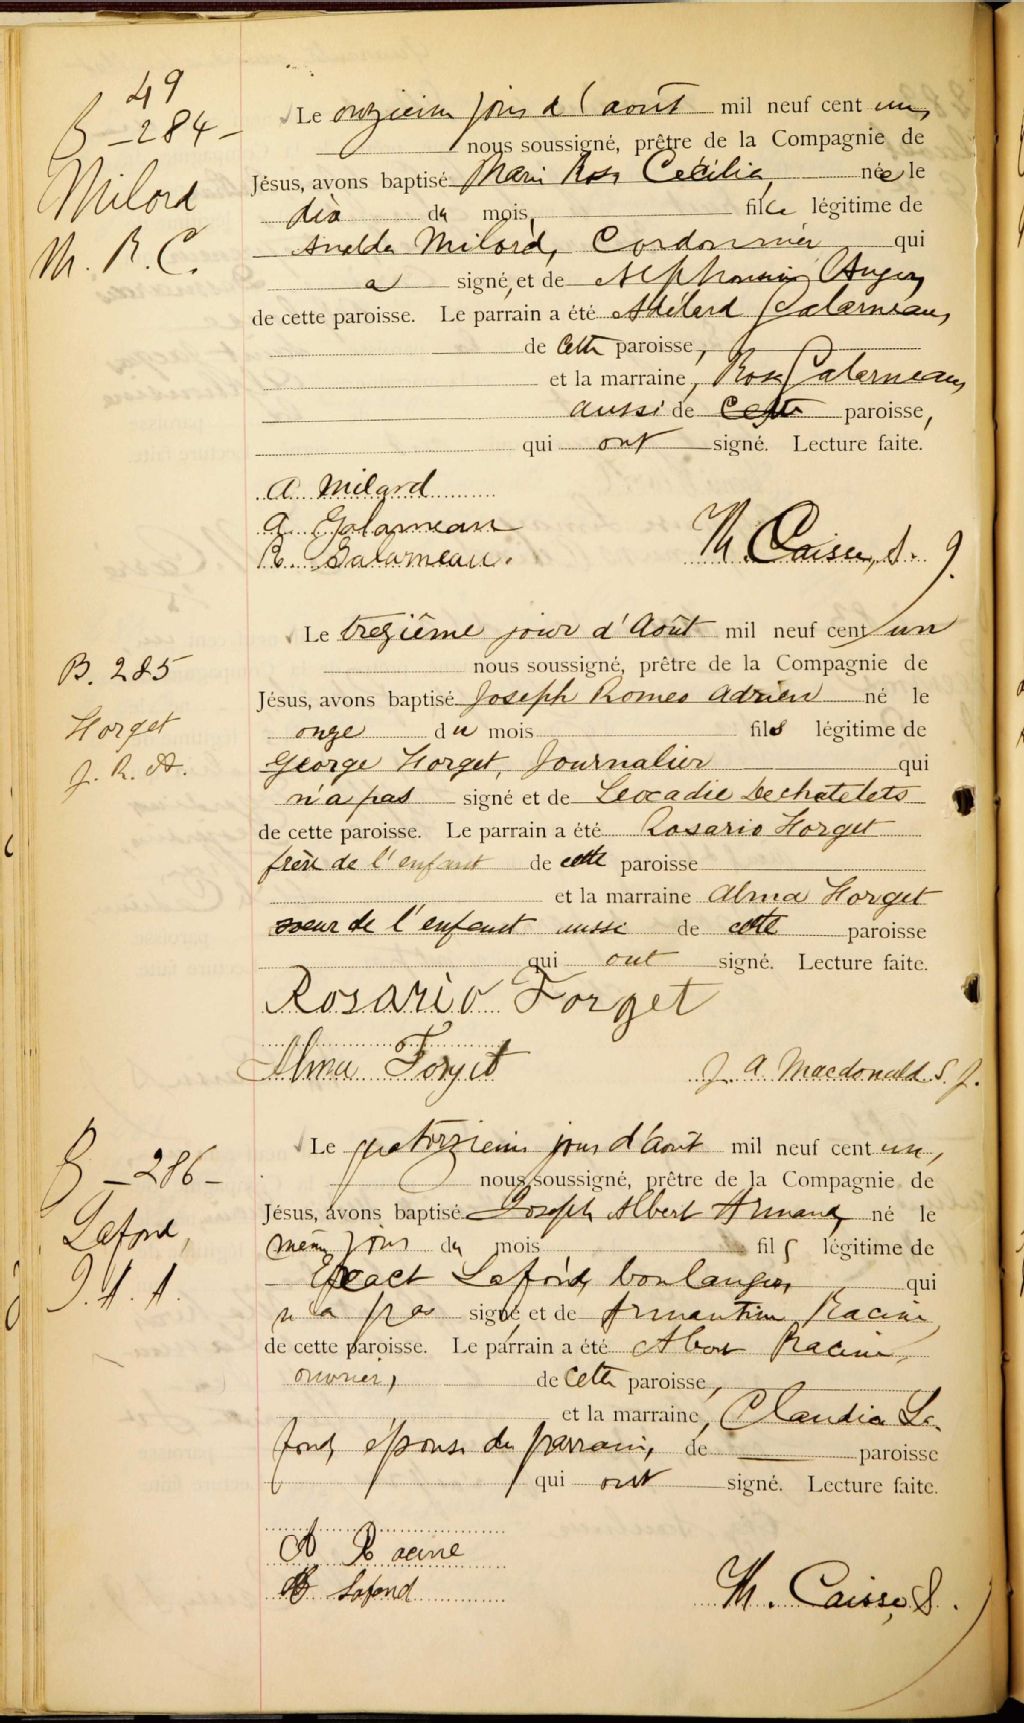 49
B - 284 -
Milord
M. R. C.
Le onzième jour d'août mil neuf cent un,
nous soussigné, prêtre de la Compagnie de
Jésus, avons baptisé Marie Rose Cécilia, née le
dix du mois, fille légitime de
Milord, Cordonnier qui
a signé, et de Auger,
de cette paroisse. Le parrain a été Adélard Galarneau,
de cette paroisse,
et la marraine, Rose Galarneau,
aussi de cette paroisse,
qui ont signé. Lecture faite.
A Milard
A. Galarneau
R. Galarneau.
Th. Caisse, S. J.
B. 285
Forget
J. R. A.
Le trezième jour d'Août mil neuf cent un
nous soussigné, prêtre de la Compagnie de
Jésus, avons baptisé Joseph Romeo Adrien né le
onze du mois fils légitime de
George Forget, Journalier qui
n'a pas signé et de Leocadie Dechatelets
de cette paroisse. Le parrain a été Rosario Forget
frère de l'enfant de cette paroisse
et la marraine Alma Forget
soeur de l'enfant aussi de cette paroisse
qui ont signé. Lecture faite.
Rosario Forget
Alma Forget
J. A. Macdonald. S. J.
B - 286 -
Lafond,
J. A. A.
Le quatorzième jour d'Août mil neuf cent un,
nous soussigné, prêtre de la Compagnie de
Jésus, avons baptisé Joseph Albert Armand, né le
même jour du mois fils légitime de
Lafond, boulanger, qui
n'a pas signé, et de Armantine Racine,
de cette paroisse. Le parrain a été Racine,
ouvrier, de cette paroisse,
et la marraine, Claudia La-
fond, épouse du parrain, de paroisse
qui ont signé. Lecture faite.
A Racine
Lafond
Th. Caisse, S. J.